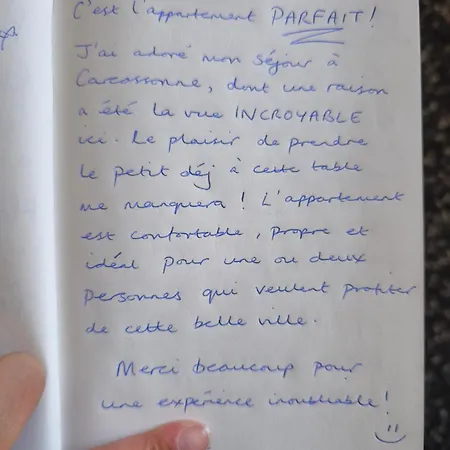 C'est l'appartement PARFAIT!
J'ai adoré mon séjour à
Carcassonne, dont une raison
a été la vue INCROYABLE
ici. Le plaisir de prendre
le petit déj à cette table
me manquera! L'appartement
est confortable, propre et
idéal pour une ou deux
personnes qui veulent profiter
de cette belle ville.
Merci beaucoup pour
une expérience inoubliable!